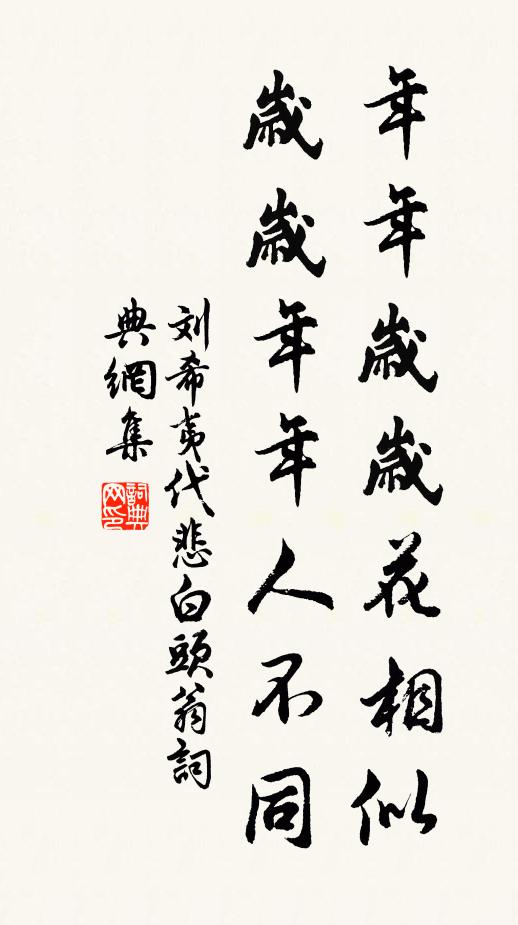 年年歲歲花相似
歲歲年年人不同
刘希夷代悲白頭翁詞
典網集
詞典网印